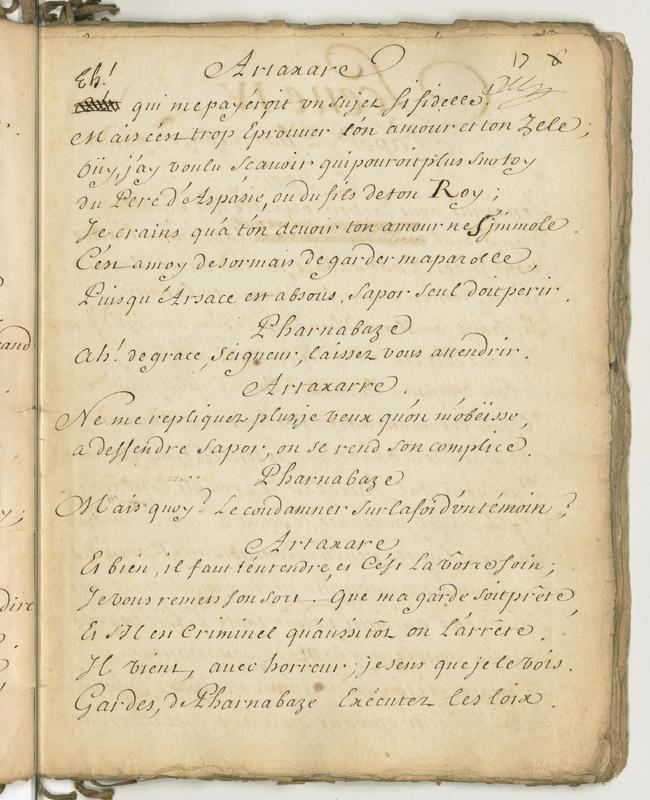 Artaxare
17 8
Eh!
qui me payeroit un sujet si fidelle.
Mais c'est trop Eprouver ton amour et ton Zele;
Oüy, j'ay voulu scavoir qui pouroit plus sur toy
du Pere d'Aspasie, ou du fils de ton Roy;
Je crains qu'a ton devoir ton amour ne s'jmmole.
C'est a moy desormais de garder ma parolle,
Puisqu'Arsace est absous, Sapor seul doit perir.
Pharnabaze
Ah! de grace, Seigneur, laissez vous attendrir.
Artaxarre.
Ne me repliquez plus, je veux qu'on m'obëisse,
a deffendre Sapor, on se rend son complice.
Pharnabaze
Mais quoy? Le condamner sur la foi d'un témoin?
Artaxare
Et bien, il faut l'entendre, et C'est la vôtre soin;
Je vous remets son sort. Que ma garde soit prête,
Et s'Il en Criminel qu'aussitôt on l'arrête.
Il vient, avec horreur; je sens que je le vois.
Gardes, de Pharnabaze Exécutez les loix.
and
y;
dire